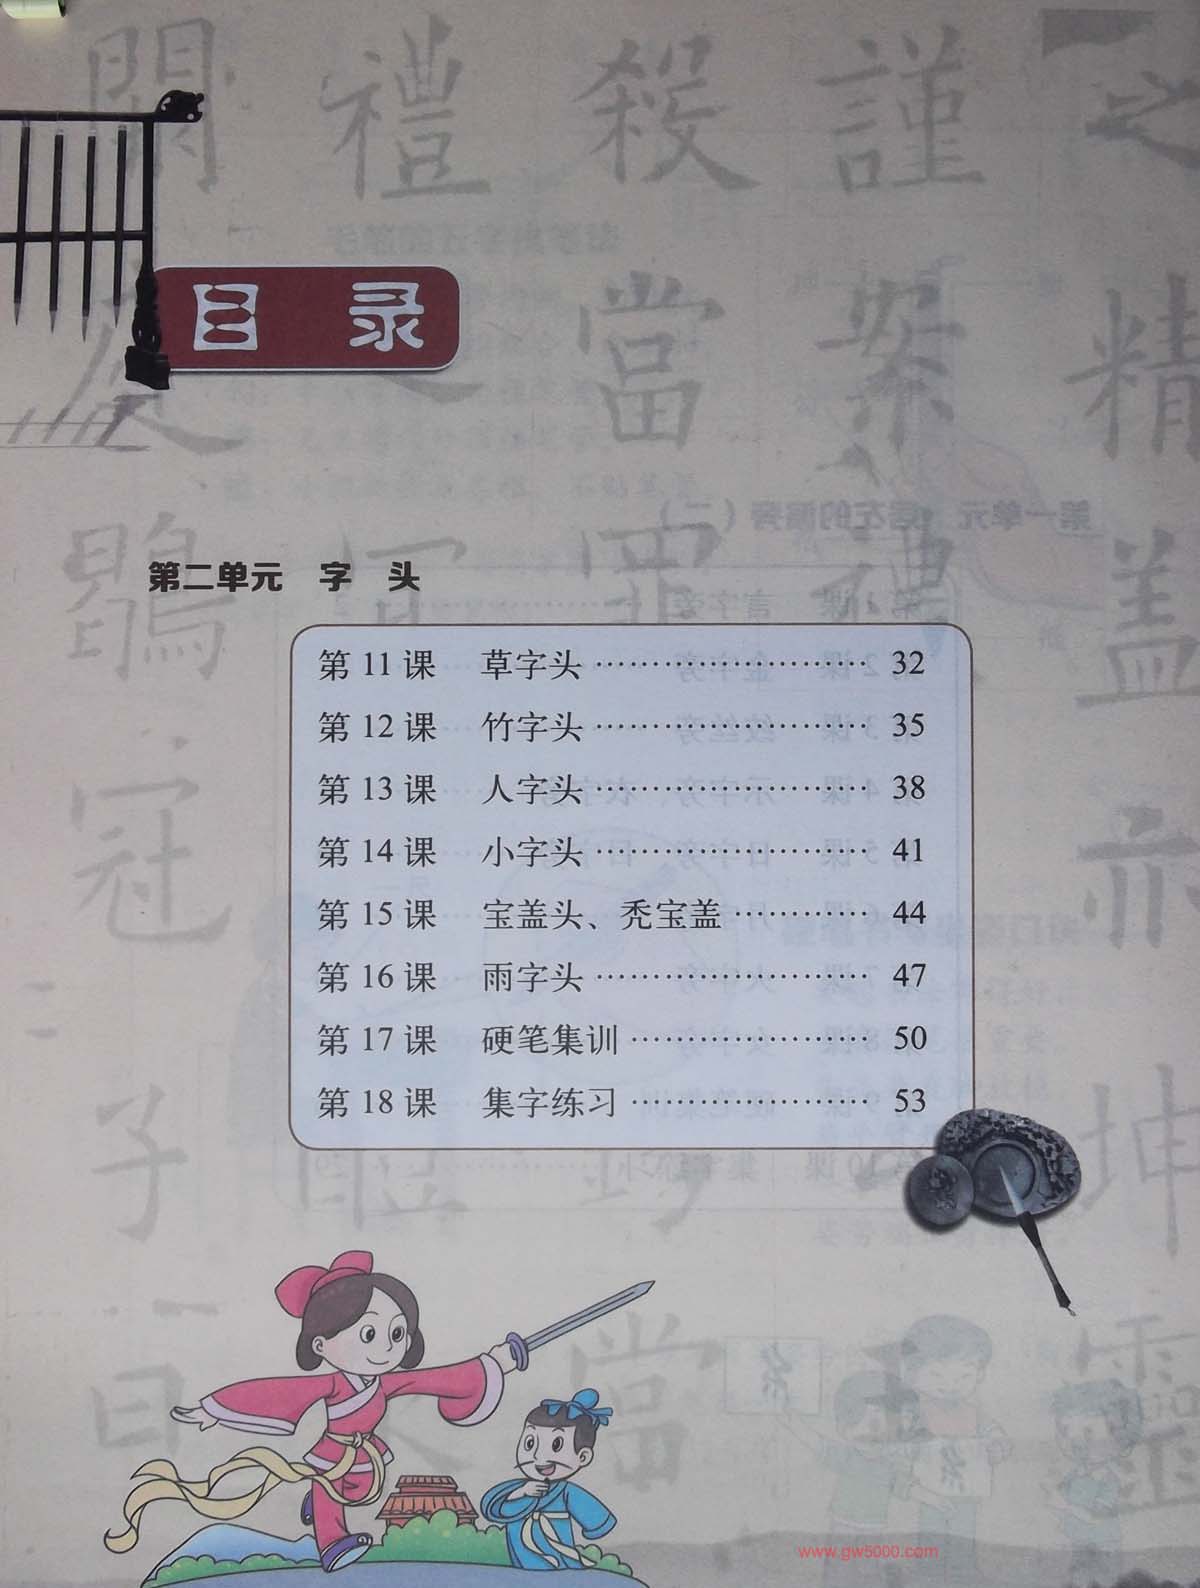 目 录
第二单元 字 头
第 11 课 草字头 …………………… 32
第 12 课 竹字头 …………………… 35
第 13 课 人字头 …………………… 38
第 14 课 小字头 …………………… 41
第 15 课 宝盖头、秃宝盖 ………… 44
第 16 课 雨字头 …………………… 47
第 17 课 硬笔集训 ………………… 50
第 18 课 集字练习 ………………… 53
www.gw5000.com